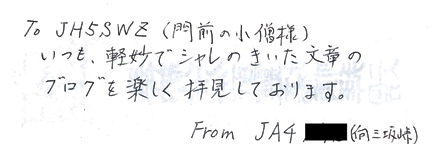 To JH5SWZ (門前の小僧様)
いつも、軽妙でシャレのきいた文章の
ブログを楽しく拝見しております。
From JA4 (向三坂峠)